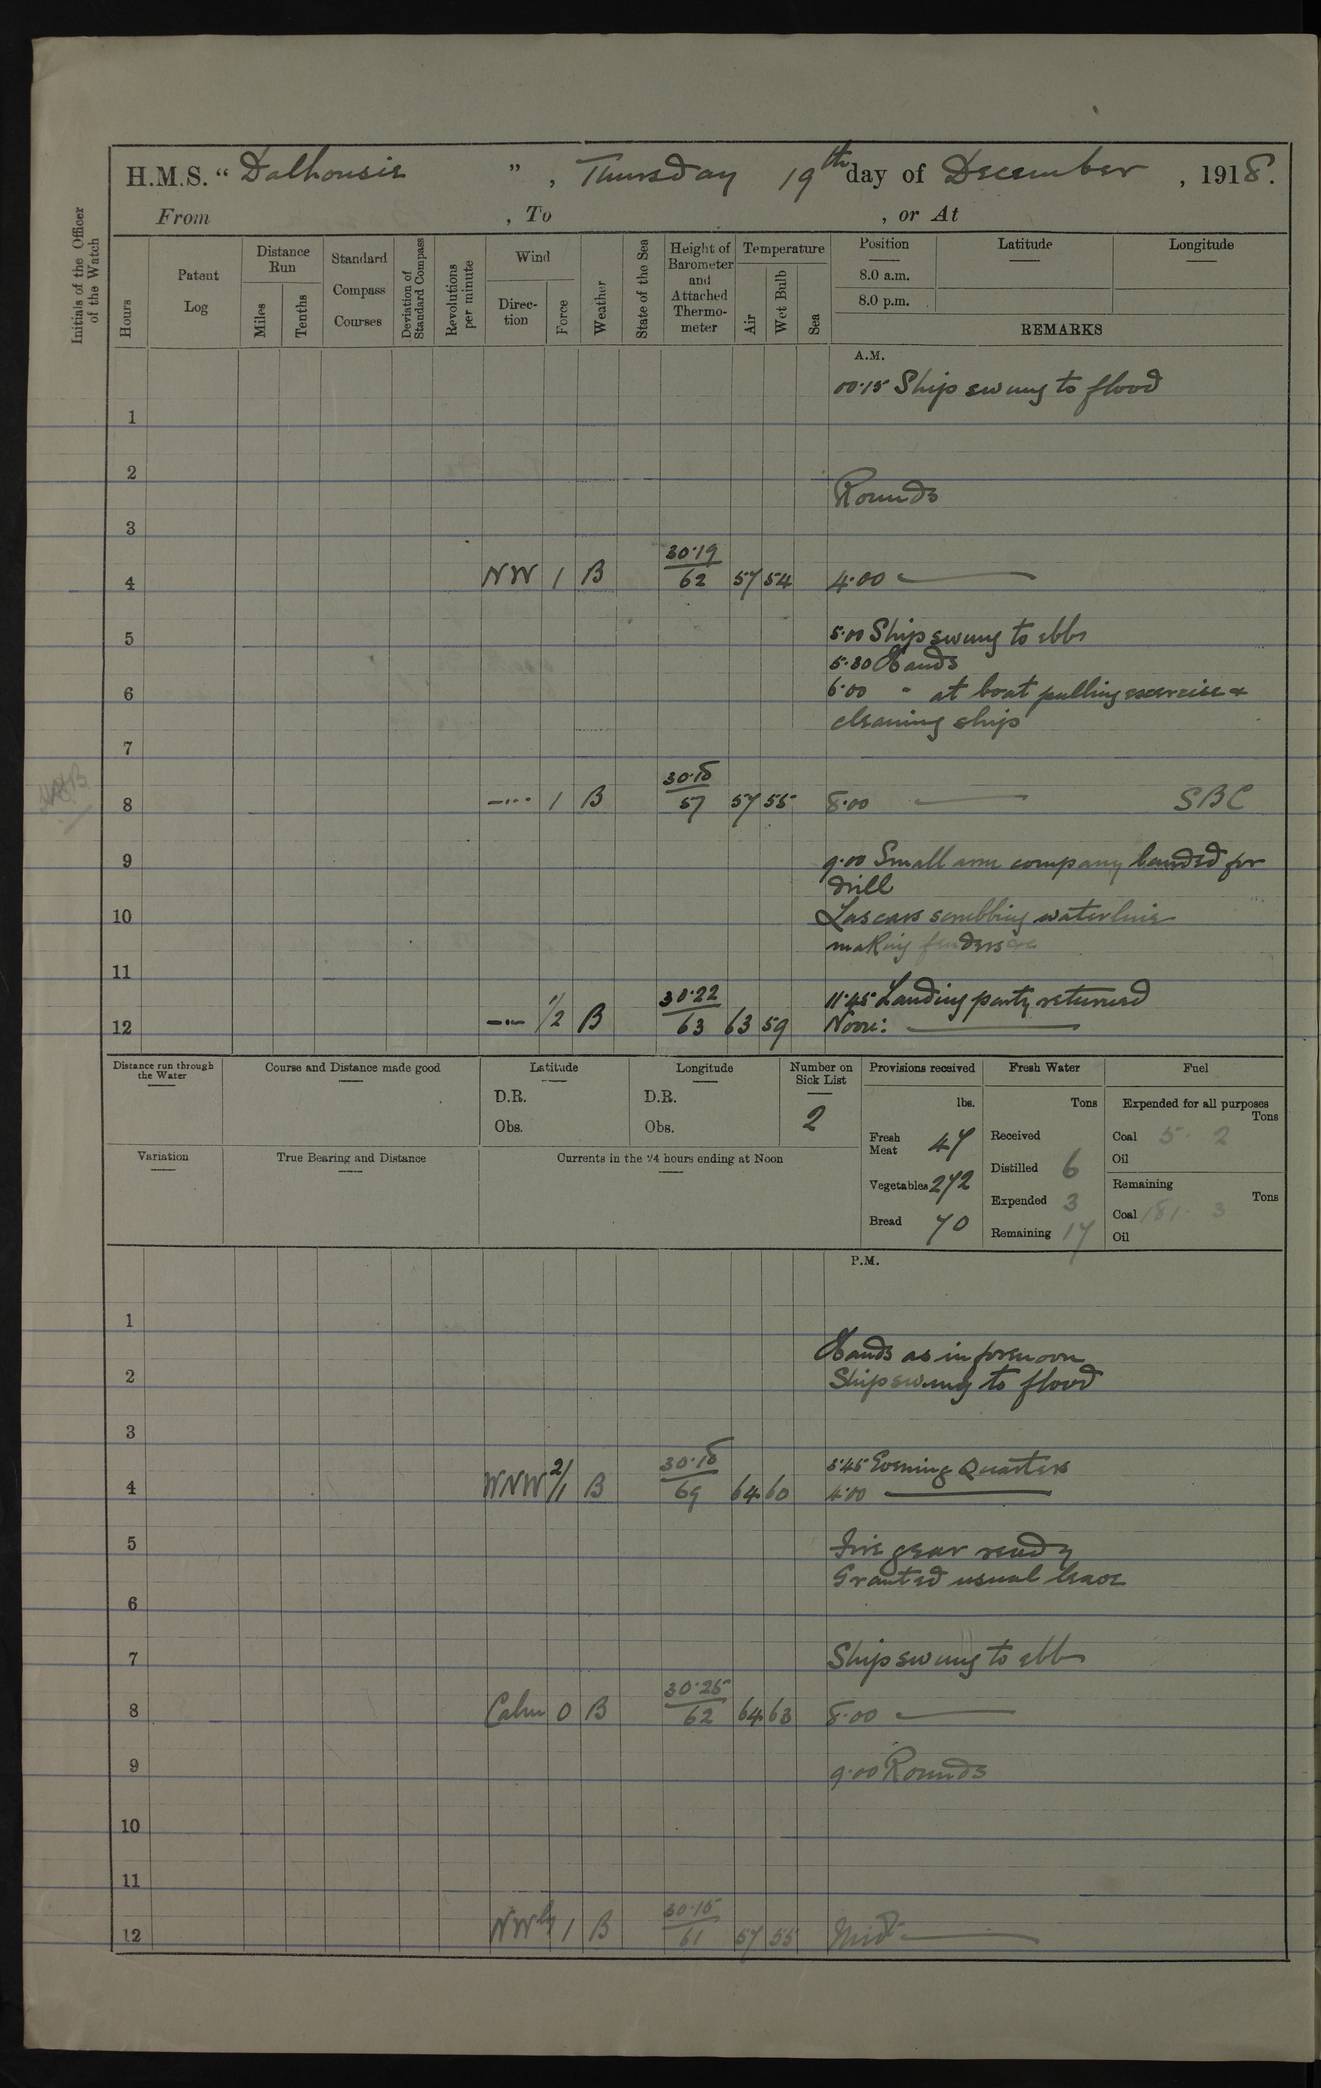 H.M.S. “ Dalhousie ” , Thursday 19th day of December , 1918.
From , To , or At
Initials of the Officer of the Watch
Hours
Patent Log
Distance Run
Miles
Tenths
Standard Compass Courses
Deviation of Standard Compass
Revolutions per minute
Wind
Direction
Force
Weather
State of the Sea
Height of Barometer and Attached Thermometer
Temperature
Air
Wet Bulb
Sea
Position
8.0 a.m.
8.0 p.m.
Latitude
Longitude
REMARKS
A.M.
00.15 Ship swung to flood
1
2
Rounds
3
4 NW 1 B 30.19/62 57 54 4.00
5 5.00 Ship swung to ebb
5.30 Hands
6 6.00 " at boat pulling exercise &
cleaning ship
7
8 -"- 1 B 30.18/57 57 55 8.00 SBC
9 9.00 Small arm company landed for
drill
10 Lascars scrubbing waterline
making fenders &c
11
11.45 Landing party returned
12 -"- 1/2 B 30.22/63 63 59 Noon:
Distance run through the Water
Course and Distance made good
Latitude
D.R.
Obs.
Longitude
D.R.
Obs.
Number on Sick List
2
Provisions received
lbs.
Fresh Meat 47
Vegetables 272
Bread 70
Fresh Water
Tons
Received
Distilled 6
Expended 3
Remaining 17
Fuel
Expended for all purposes
Tons
Coal 5. 2
Oil
Remaining
Tons
Coal 181. 3
Oil
Variation
True Bearing and Distance
Currents in the 24 hours ending at Noon
P.M.
1
Hands as in forenoon
2 Ship swung to flood
3
3.45 Evening Quarters
4 WNW 2/1 B 30.18/69 64 60 4.00
5 Fire gear ready
Granted usual leave
6
7 Ship swung to ebb
8 Calm 0 B 30.25/62 64 63 8.00
9 9.00 Rounds
10
11
12 NWly 1 B 30.15/61 57 55 Mid